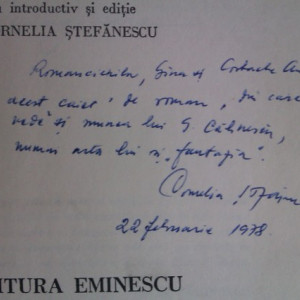 introductiv și ediție
CORNELIA ȘTEFĂNESCU
Romancierilor, Gina și Costache
acest caiet de roman, din care
vede și munca lui G. Călinescu,
numai arta lui și „fantezia”.
Cornelia Ștefănescu
22 februarie 1978.
EDITURA EMINESCU